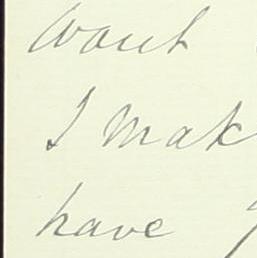 want
I mak
have